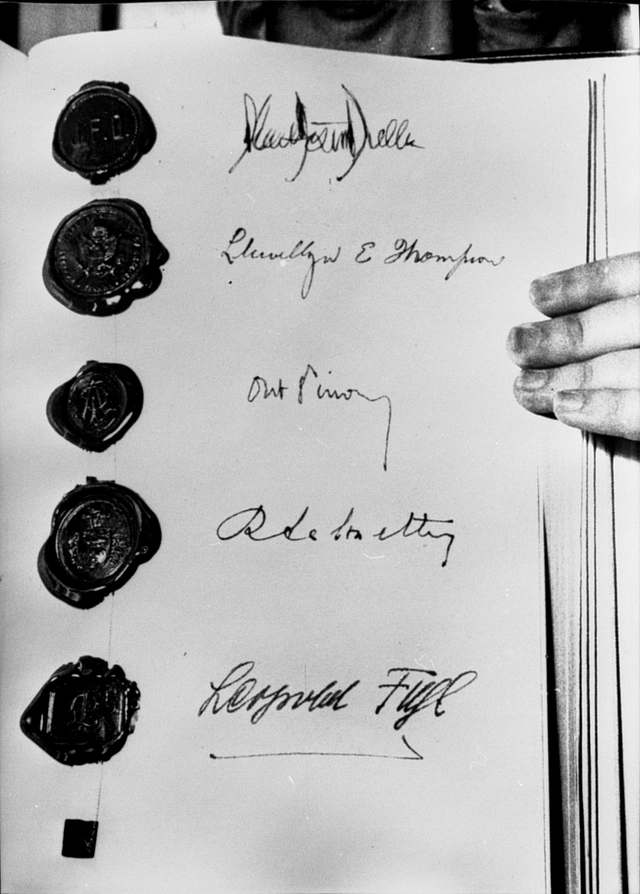 John Foster Dulles
Llewellyn E Thompson
Ant Pinay
R Lalouette
Leopold Figl